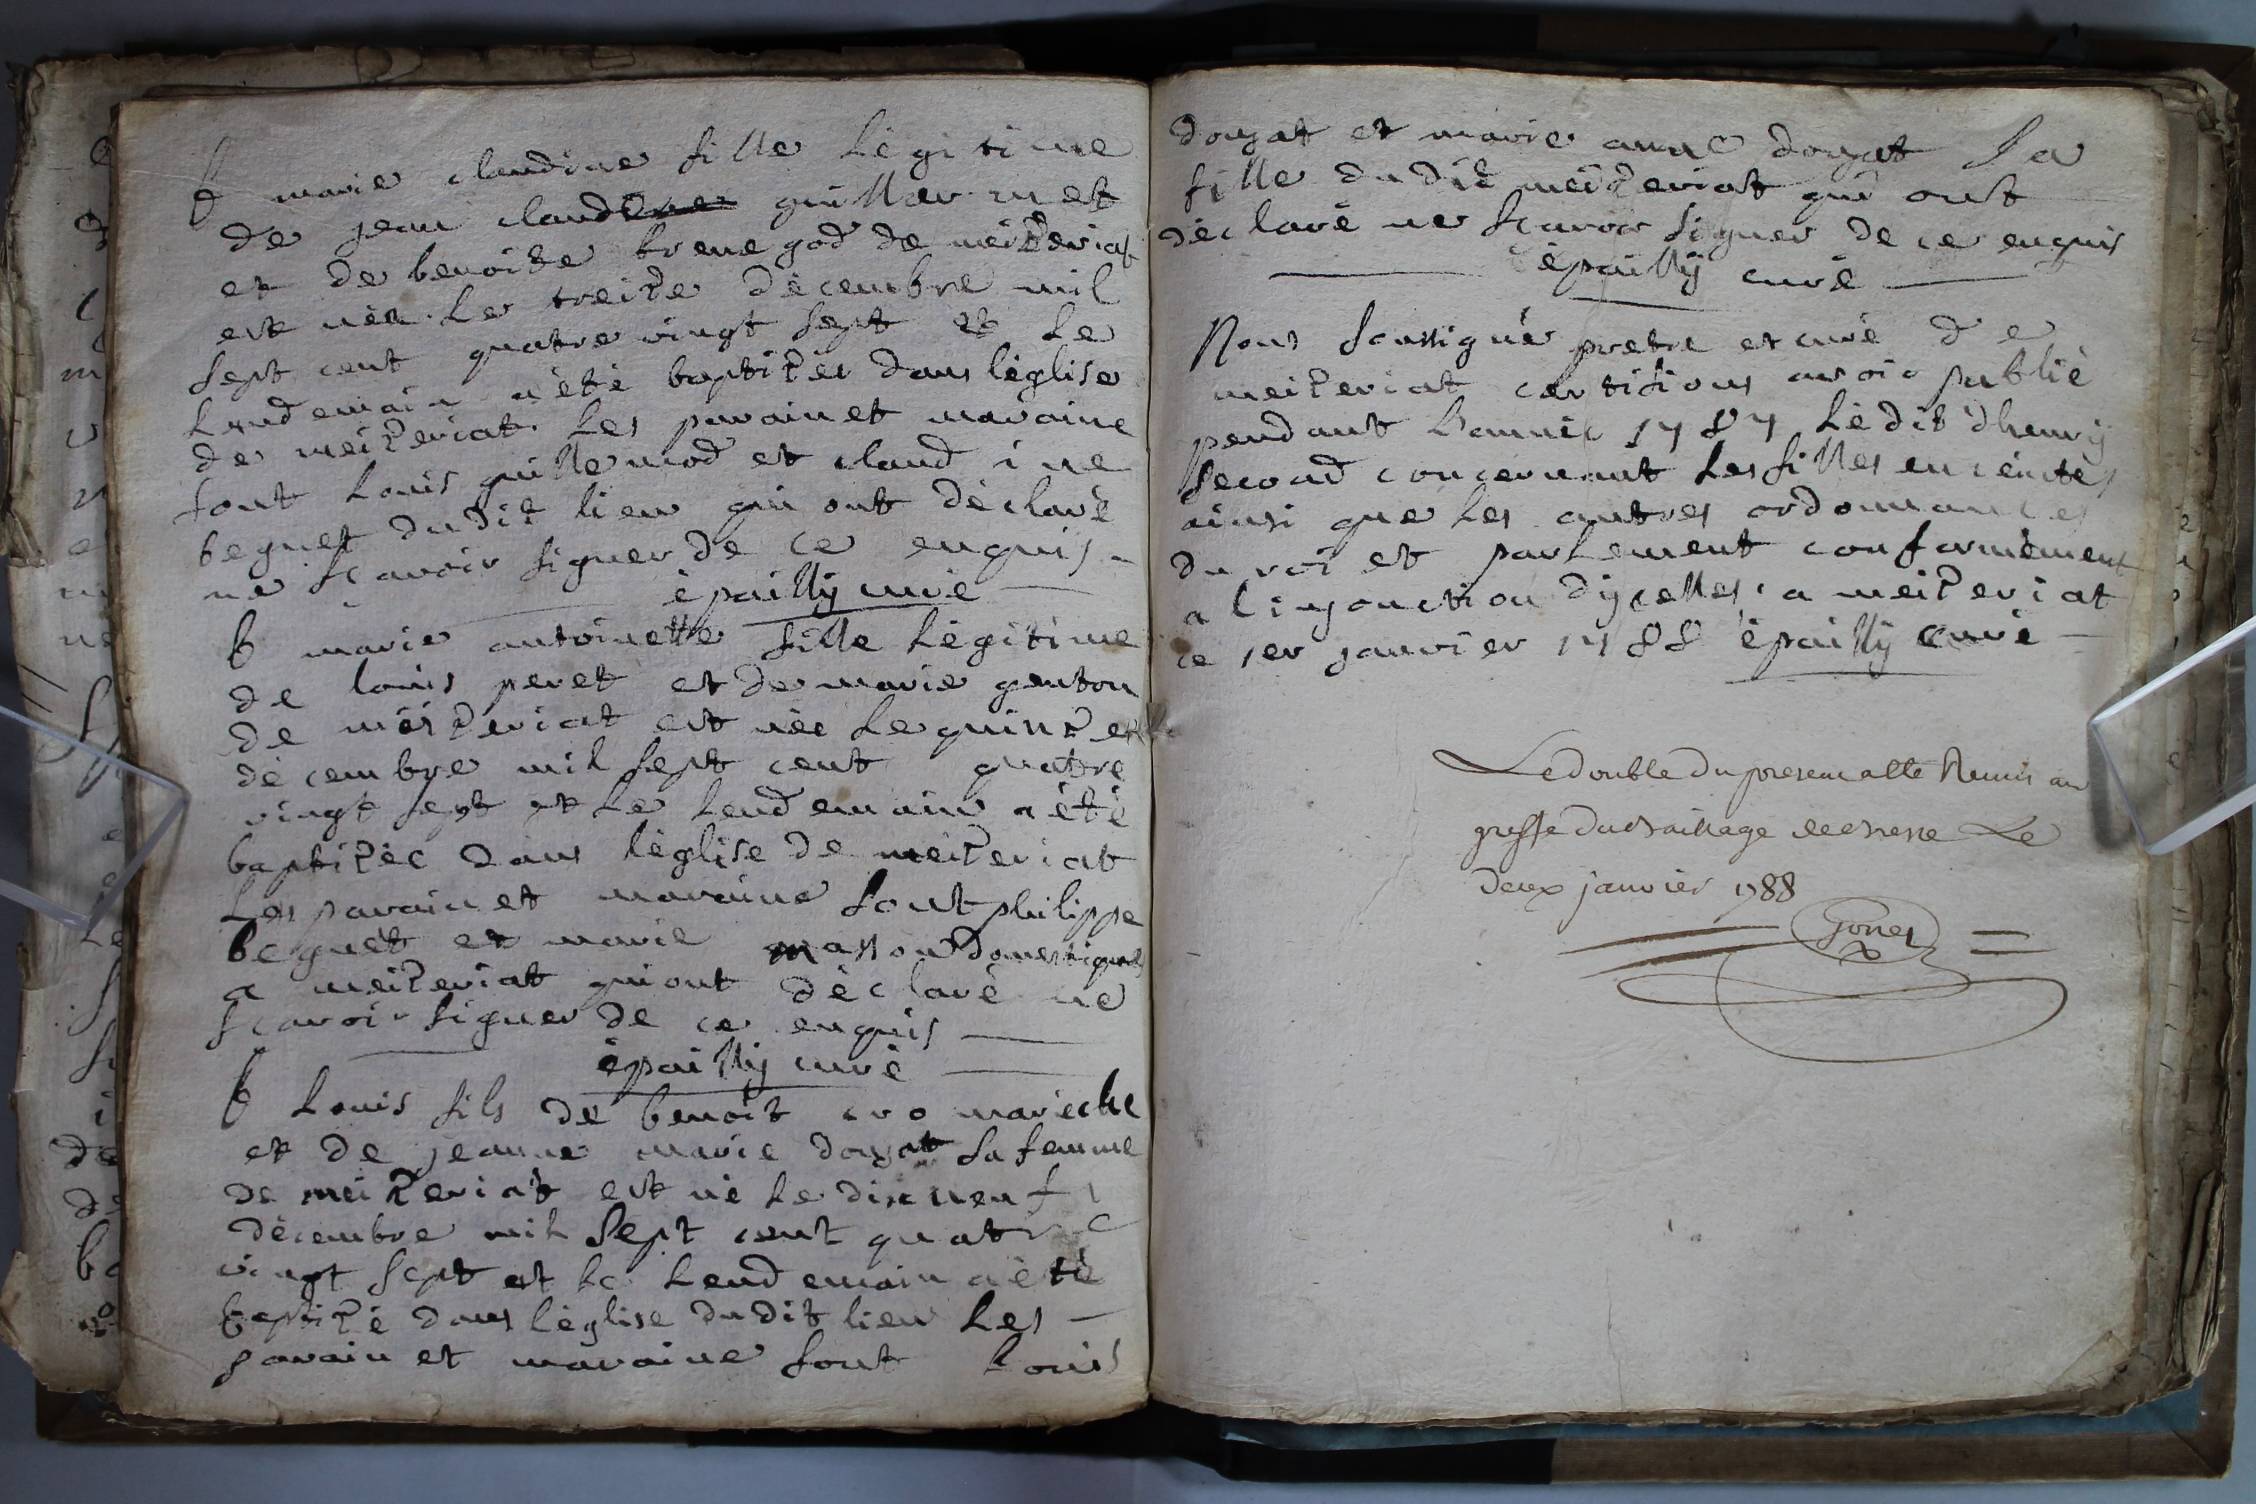 b marie claudine fille légitime
de jean claud guillermet
et de benoite brenegod de meizeriat
est née le treize décembre mil
sept cent quatre vingt sept et le
lendemain a été baptizée dans l'église
de meizeriat les parain et maraine
sont louis guillemod et claudine
beguet dudit lieu qui ont déclaré
ne scavoir signer de ce enquis
épailly curé
b marie antoinette fille légitime
de louis peret et de marie genton
de meizeriat est née le quinze
décembre mil sept cent quatre
vingt sept et le lendemain a été
baptizée dans l'église de meizeriat
les parain et maraine sont philippe
beguet et marie masson domestique
a meizeriat qui ont déclaré ne
scavoir signer de ce enquis
épailly curé
b louis fils de benoit cro maréchc
et de jeanne marie donjat sa femme
de meizeriat est né le dix neuf
décembre mil sept cent quatre
vingt sept et le lendemain a été
baptizé dans l'église dudit lieu les
parain et maraine sont louis
donjat et marie anne donjat sa
fille dudit meizeriat qui ont
déclaré ne scavoir signer de ce enquis
épailly curé
Nous soussigné pretre et curé de
meizeriat certifions avoir publié
pendant l'année 1787 l'édit d'henry
second concernant les filles enceintes
ainsi que les autres ordonnances
du roi et parlement conformément
a l'injonction d'ycelles a meizeriat
ce 1er janvier 1788 épailly curé
Le double du present a été Remis au
greffe du Bailliage de Bresse Le
deux janvier 1788